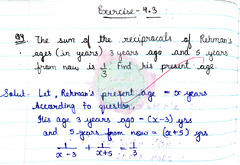 Exercise - 4.3
Q4. The sum of the reciprocals of Rehman's
ages (in years) 3 years ago and 5 years
from now is 1/3. Find his present age.
Solut. Let, Rehman's present age = x years
According to question,
His age 3 years ago = (x-3) yrs
and 5 years from now = (x+5) yrs
1/(x-3) + 1/(x+5) = 1/3